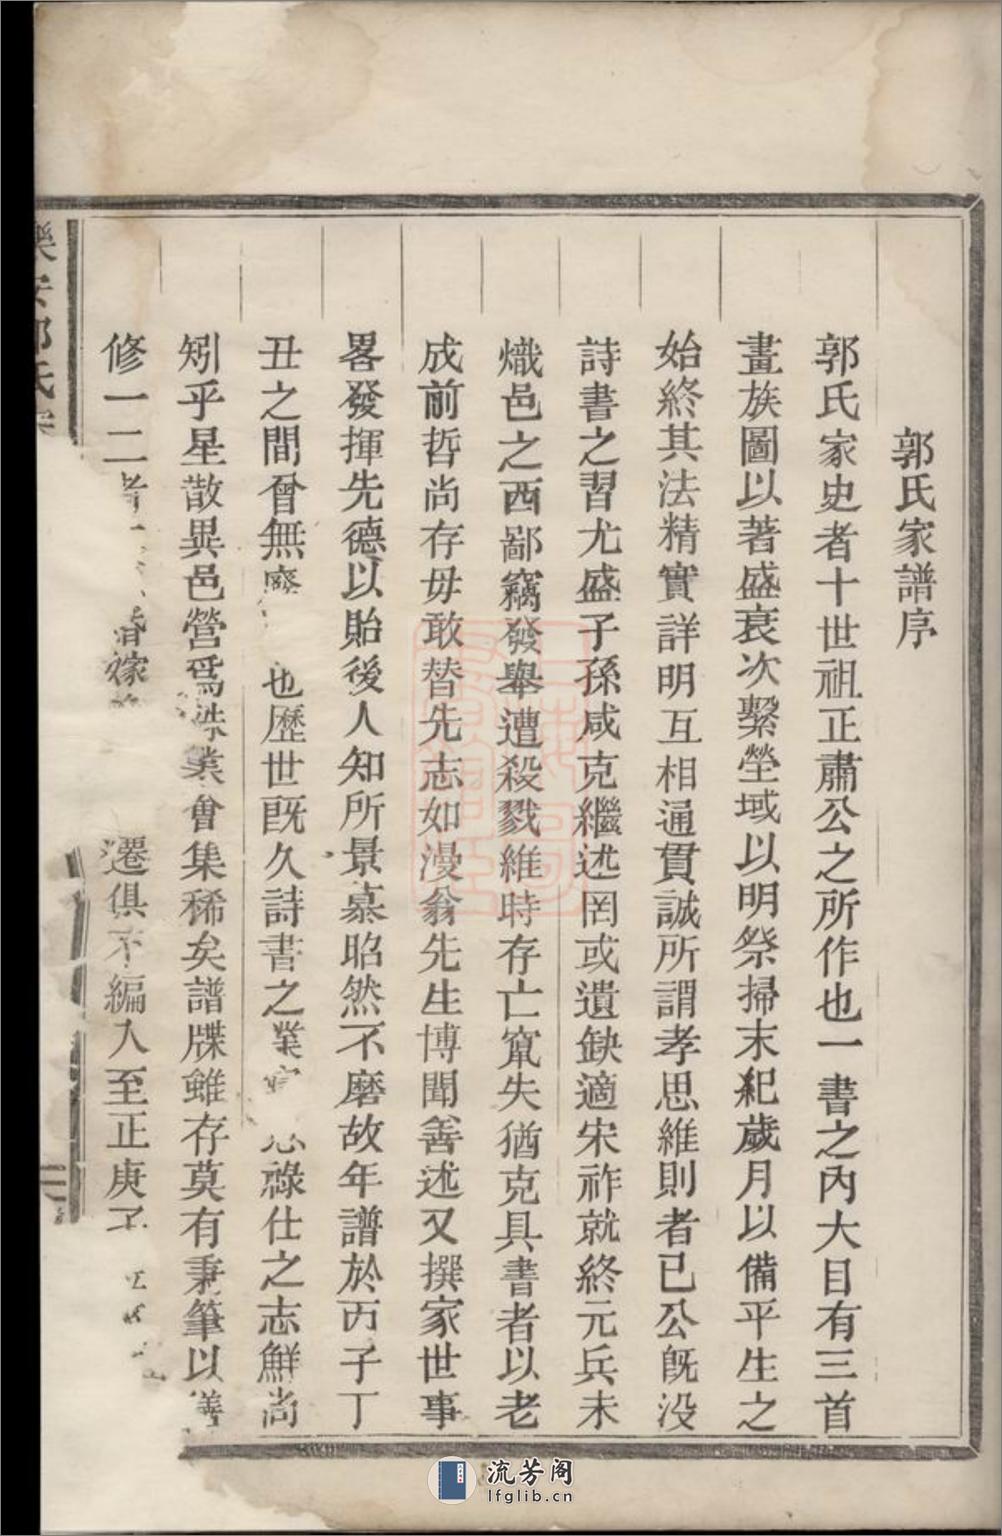 郭氏家譜序
郭氏家史者十世祖正肅公之所作也一書之內大目有三首
畫族圖以著盛衰次繫塋域以明祭掃末紀歲月以備平生之
始終其法精實詳明互相通貫誠所謂孝思維則者已公旣没
詩書之習尤盛子孫咸克繼述罔或遺缺適宋祚就終元兵未
熾邑之西鄙竊發舉遭殺戮維時存亡竄失猶克具書者以老
成前哲尚存毋敢替先志如漫翁先生博聞善述又撰家世事
畧發揮先德以貽後人知所景慕昭然不磨故年譜於丙子丁
丑之間曾無廢也歷世旣久詩書之業祿仕之志鮮尚
矧乎星散異邑營爲殊業會集稀矣譜牒雖存莫有秉筆以繕
修一二者婚嫁遷俱不編入至正庚子
樂安郭氏
流芳阁
lfglib.cn